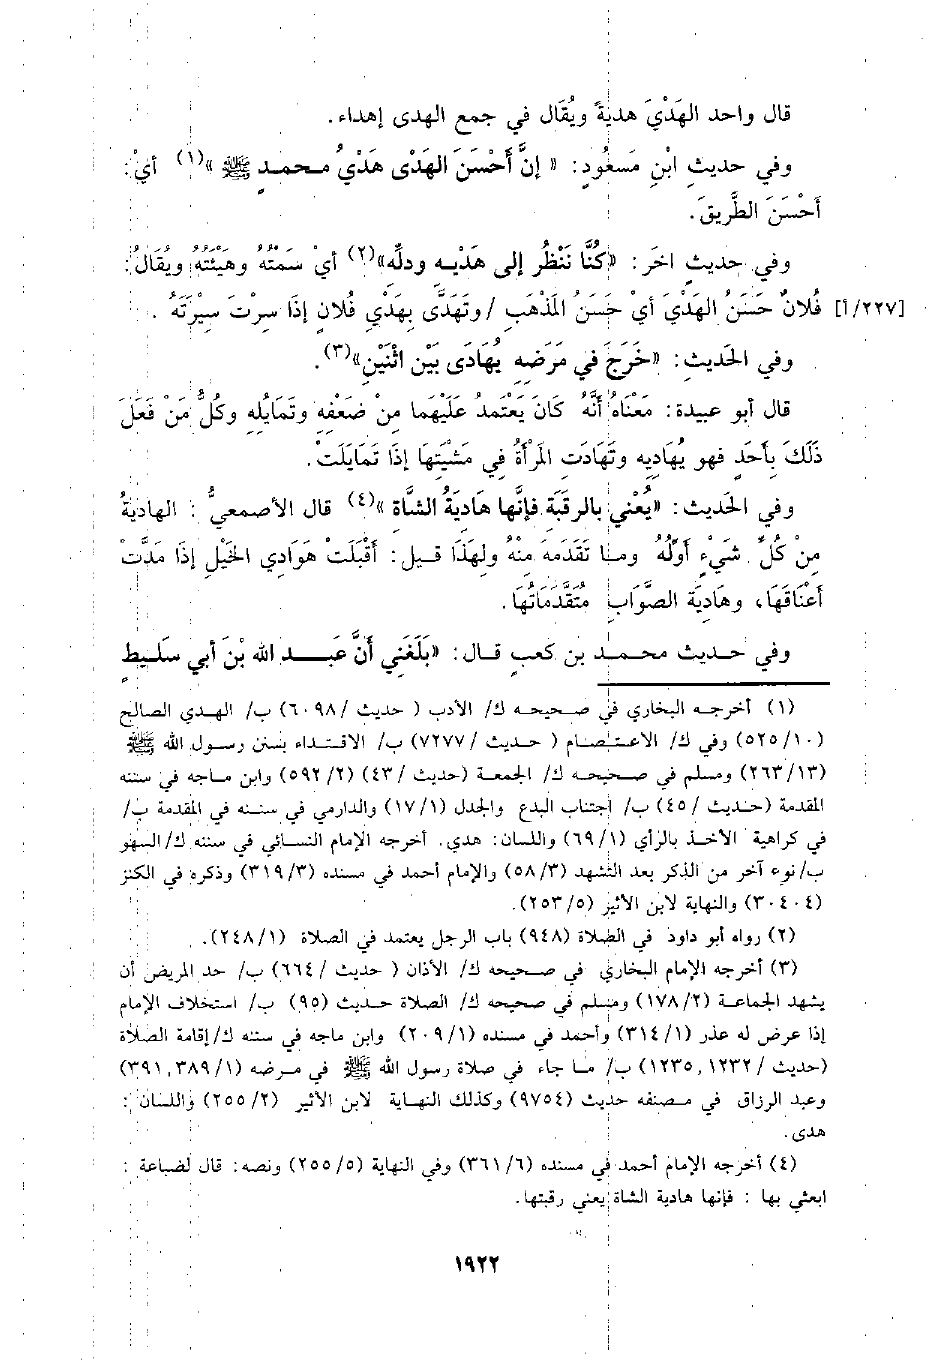 قال واحد الهَدْيَ هديةً ويُقَال في جمع الهدى إهداء.
وفي حديثِ ابْنِ مَسعُودٍ: « إنَّ أَحْسَنَ الهَدْى هَدْيُ محمدٍ ﷺ »(١) أيْ:
أحْسَنَ الطَّريقَ.
وفي حديثٍ اخَر: «كُنَّا نَنْظُر إلى هَدْيه ودلِّه»(٢) أيْ سَمتُهُ وهَيْئتُهُ ويُقَال:
[٢٢٧/أ] فُلانٌ حَسَنُ الهَدْيَ أيْ حَسَنُ المَذْهَبِ / وتَهَدَّى بِهَدْيِ فُلانٍ إذَا سِرْتَ سِيْرَتَهُ .
وفي الحَديث: «خَرَجَ في مَرَضه يُهَادَى بَيْن اثْنَيْنِ»(٣).
قال أبو عبيدة: مَعْنَاهُ أنَّهُ كَانَ يَعْتَمدُ عَلَيْهمَا منْ ضَعْفِهِ وتَمَايُله وكُلُّ مَنْ فَعَلَ
ذَلَكَ بِأحَدٍ فهو يُهَاديه وتَهَادَتِ المَرْأةُ فِي مَشْيَتِهَا إذَا تَمَايَلَتْ.
وفي الحَديث: «يُعْني بالرقبَة فإنَّها هَاديَةُ الشَّاة »(٤) قال الأصمَعيُّ : الهاديةُ
مِنْ كُلِّ شَيْءٍ أوَّلُهُ ومـا تَقَدَمَه منْهُ ولهَذَا قيل: أقْبَلَتْ هَوَادي الخَيْلِ إذَا مَدَّتْ
أعْنَاقَهَا، وهَاديَة الصَّوَابِ مُتَقَّدَمَاتُهَا.
وفي حديث محمد بن كعبٍ قال: «بَلَغَني أنَّ عَبد الله بْنَ أبي سَليطٍ
(١) أخرجه البخاري في صحيحه ك/ الأدب ( حديث / ٦٠٩٨) ب/ الهدي الصالح
(٥٢٥/١٠) وفي ك/ الاعتصام ( حديث / ٧٢٧٧) ب/ الاقتداء بسنن رسول الله ﷺ
(٢٦٣/١٣) ومسلم في صحيحه ك/ الجمعة (حديث / ٤٣) (٥٩٢/٢) وابن ماجه في سننه
المقدمة (حديث / ٤٥) ب/ أجتناب البدع والجدل (١٧/١) والدارمي في سننه في المقدمة ب/
في كراهية الأخذ بالرأي (٦٩/١) واللسان: هدي. أخرجه الإمام النسائي في سننه ك/ السهو
ب/ نوع آخر من الذكر بعد التشهد (٥٨/٣) والإمام أحمد في مسنده (٣١٩/٣) وذكره في الكنز
(٣٠٤٠٤) والنهاية لابن الأثير (٢٥٣/٥).
(٢) رواه أبو داود في الصلاة (٩٤٨) باب الرجل يعتمد في الصلاة (٢٤٨/١).
(٣) أخرجه الإمام البخاري في صحيحه ك/ الأذان ( حديث / ٦٦٤) ب/ حد المريض أن
يشهد الجماعة (١٧٨/٢) ومسلم في صحيحه ك/ الصلاة حديث (٩٥) ب/ استخلاف الإمام
إذا عرض له عذر (٣١٤/١) وأحمد في مسنده (٢٠٩/١) وابن ماجه في سننه ك/ إقامة الصلاة
(حديث / ١٢٣٢ ,١٢٣٥) ب/ ما جاء في صلاة رسول الله ﷺ في مرضه (٣٨٩/١ ,٣٩١)
وعبد الرزاق في مصنفه حديث (٩٧٥٤) وكذلك النهاية لابن الأثير (٢٥٥/٢) واللسان :
هدى.
(٤) أخرجه الإمام أحمد في مسنده (٣٦١/٦) وفي النهاية (٢٥٥/٥) ونصه: قال لضباعة :
ابعثي بها : فإنها هادية الشاة يعني رقبتها.
١٩٢٢